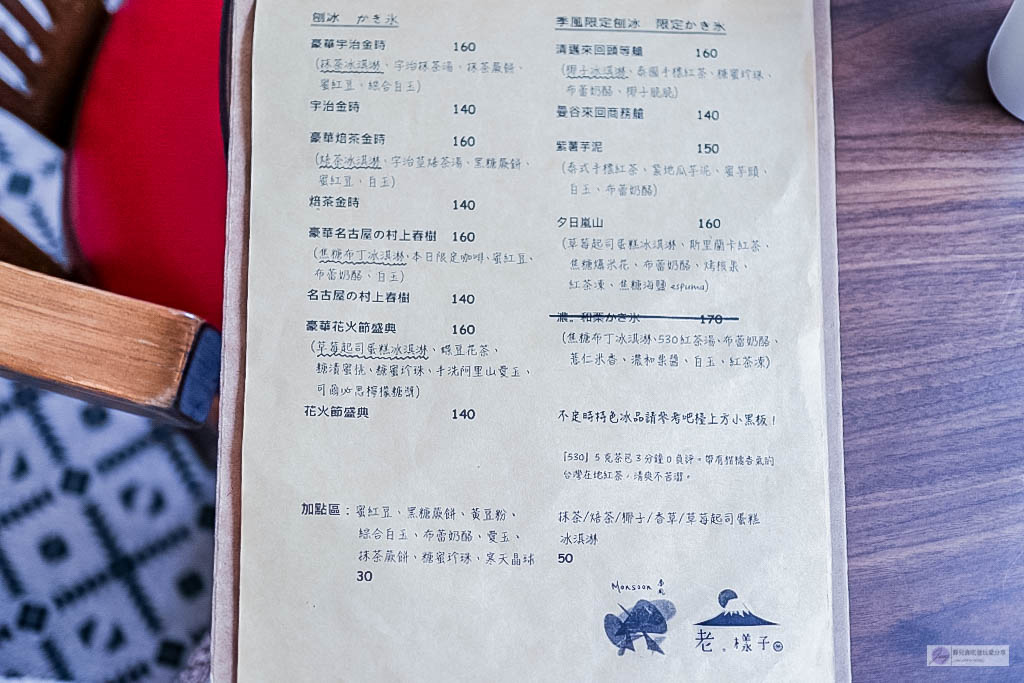 刨冰 かき氷
豪華宇治金時 160
(抹茶冰淇淋、宇治抹茶湯、抹茶蕨餅、
蜜紅豆、綜合白玉)
宇治金時 140
豪華焙茶金時 160
(焙茶冰淇淋、宇治莖焙茶湯、黑糖蕨餅、
蜜紅豆、白玉)
焙茶金時 140
豪華名古屋の村上春樹 160
(焦糖布丁冰淇淋、本日限定咖啡、蜜紅豆、
布蕾奶酪、白玉)
名古屋の村上春樹 140
豪華花火節盛典 160
(草莓起司蛋糕冰淇淋、蝶豆花茶、
糖漬蜜桃、糖蜜珍珠、手洗阿里山愛玉、
可爾必思檸檬糖漿)
花火節盛典 140
加點區：蜜紅豆、黑糖蕨餅、黃豆粉、
綜合白玉、布蕾奶酪、愛玉、
抹茶蕨餅、糖蜜珍珠、寒天晶球
30
季風限定刨冰 限定かき氷
清邁來回頭等艙 160
(椰子冰淇淋、泰國手標紅茶、糖蜜珍珠、
布蕾奶酪、椰子脆脆)
曼谷來回商務艙 140
紫薯芋泥 150
(泰式手標紅茶、紫地瓜芋泥、蜜芋頭、
白玉、布蕾奶酪)
夕日嵐山 160
(草莓起司蛋糕冰淇淋、斯里蘭卡紅茶、
焦糖爆米花、布蕾奶酪、烤核果、
紅茶凍、焦糖海鹽espuma)
濃。和栗かき氷 170
(焦糖布丁冰淇淋、530紅茶湯、布蕾奶酪、
薏仁米香、濃和栗醬、白玉、紅茶凍)
不定時特色冰品請參考吧檯上方小黑板！
「530」5克茶包3分鐘0負評。帶有柑橘香氣的
台灣在地紅茶，清爽不苦澀。
抹茶/焙茶/椰子/香草/草莓起司蛋糕
冰淇淋
50
Monsoon 季風
老。樣子